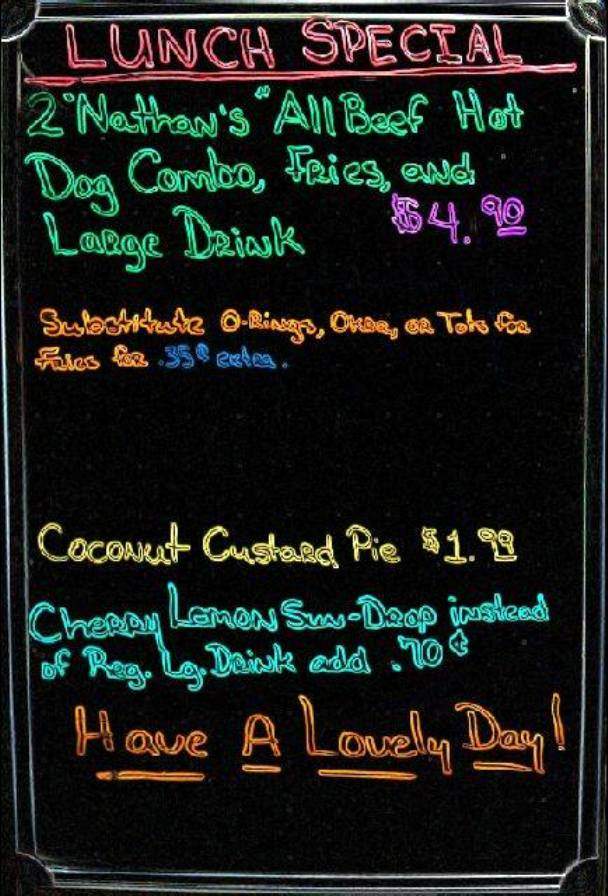 LUNCH SPECIAL
2 "Nathan's" All Beef Hot
Dog Combo, Fries, and
Large Drink $4.90
Substitute O-Rings, Okra, or Tots for
Fries for .35¢ extra.
Coconut Custard Pie $1.99
Cherry Lemon Sun-Drop instead
of Reg. Lg. Drink add .70¢
Have A Lovely Day!